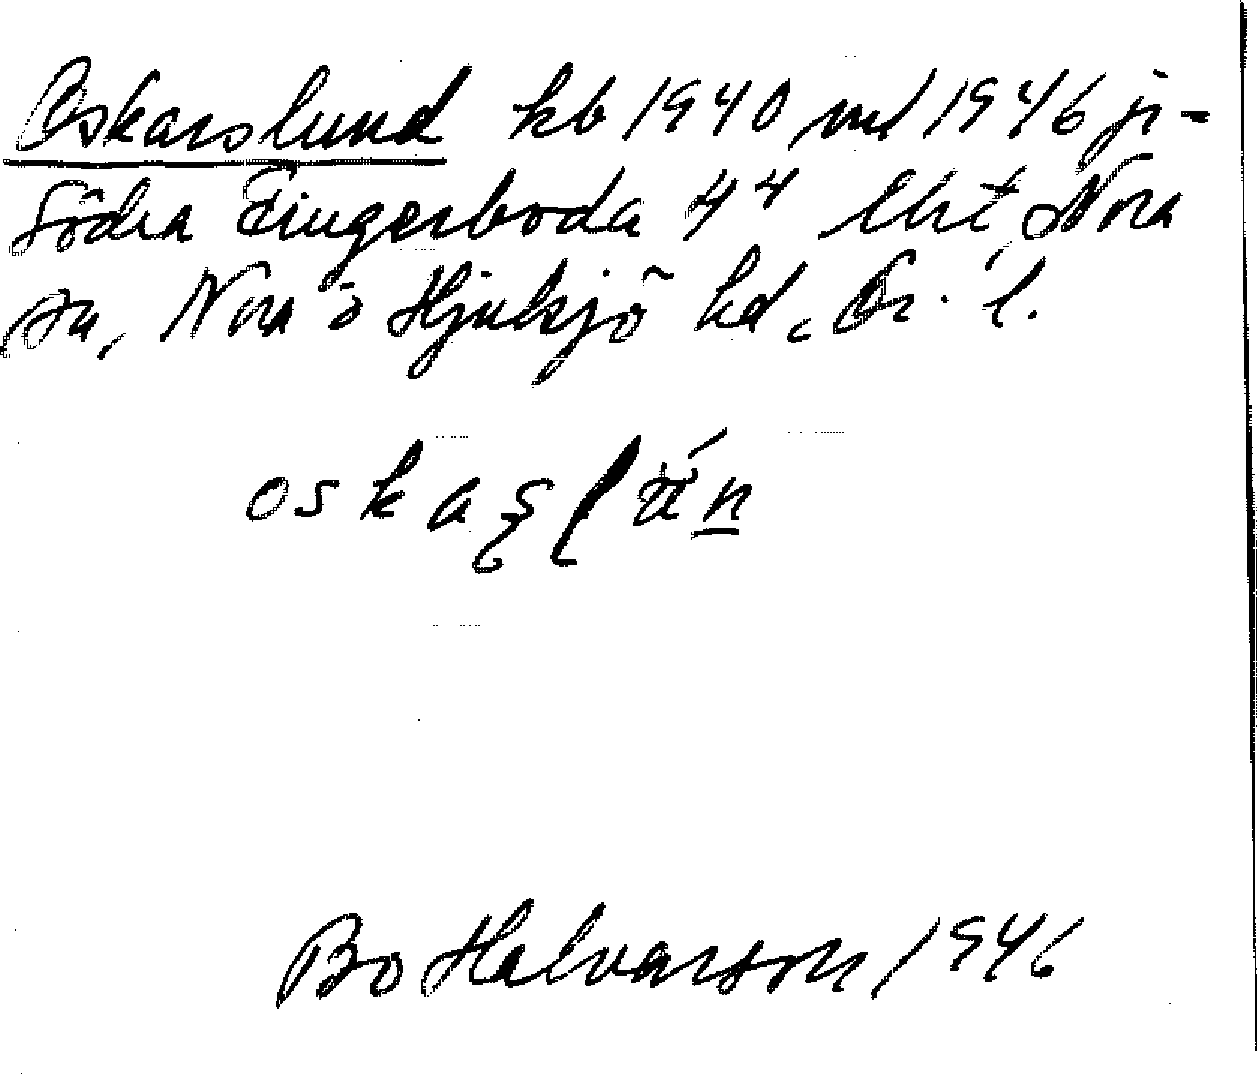 Oskarslund kb 1940 ml 1946 ji-
Södra Fingerboda 4⁴ Nora
sn, Nora o Hjulsjö hd. Ör. l.
oskaʂlún
Bo Halvarson 1946